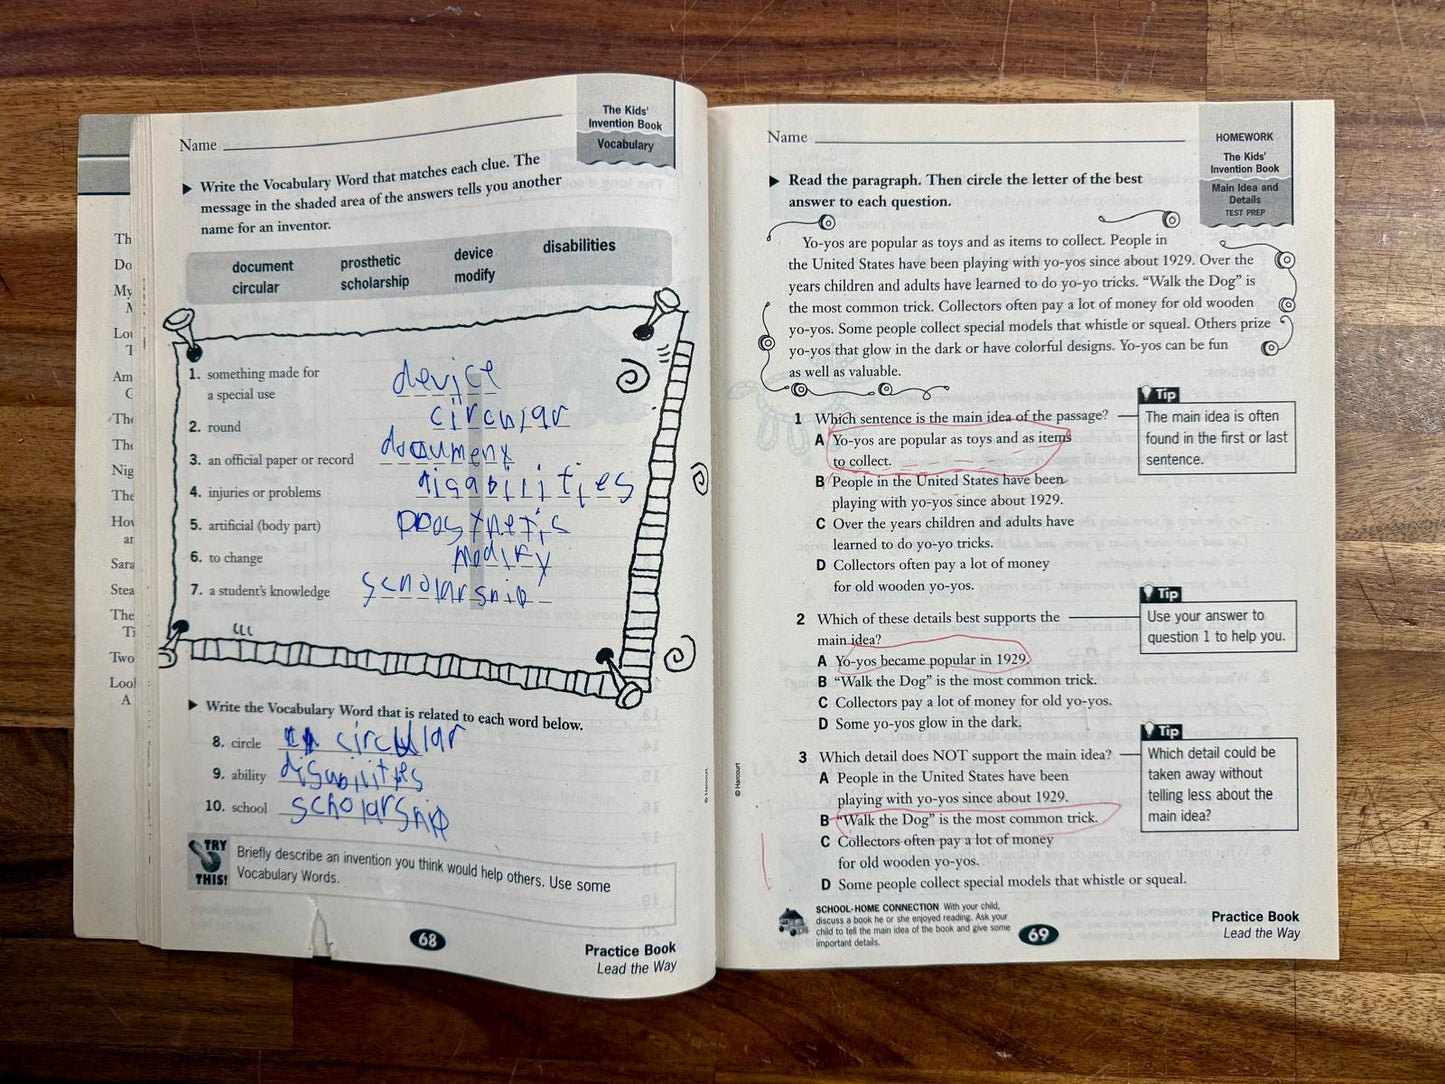 Name
The Kids'
Invention Book
Vocabulary
Write the Vocabulary Word that matches each clue. The
message in the shaded area of the answers tells you another
name for an inventor.
document prosthetic device disabilities
circular scholarship modify
1. something made for
a special use
device
2. round circular
3. an official paper or record document
4. injuries or problems disabilities
5. artificial (body part) prosthetic
6. to change modify
7. a student's knowledge scholarship
Write the Vocabulary Word that is related to each word below.
8. circle circular
9. ability disabilities
10. school scholarship
TRY
THIS!
Briefly describe an invention you think would help others. Use some
Vocabulary Words.
68
Practice Book
Lead the Way
Th
Do
My
Lou
T
Am
C
The
The
Nig
The
How
ar
Sara
Stea
The
Ti
Two
Lool
A
Name
HOMEWORK
The Kids'
Invention Book
Main Idea and
Details
TEST PREP
Read the paragraph. Then circle the letter of the best
answer to each question.
Yo-yos are popular as toys and as items to collect. People in
the United States have been playing with yo-yos since about 1929. Over the
years children and adults have learned to do yo-yo tricks. “Walk the Dog” is
the most common trick. Collectors often pay a lot of money for old wooden
yo-yos. Some people collect special models that whistle or squeal. Others prize
yo-yos that glow in the dark or have colorful designs. Yo-yos can be fun
as well as valuable.
1 Which sentence is the main idea of the passage?
A Yo-yos are popular as toys and as items
to collect.
B People in the United States have been
playing with yo-yos since about 1929.
C Over the years children and adults have
learned to do yo-yo tricks.
D Collectors often pay a lot of money
for old wooden yo-yos.
Tip
The main idea is often
found in the first or last
sentence.
2 Which of these details best supports the
main idea?
A Yo-yos became popular in 1929.
B “Walk the Dog” is the most common trick.
C Collectors pay a lot of money for old yo-yos.
D Some yo-yos glow in the dark.
Tip
Use your answer to
question 1 to help you.
3 Which detail does NOT support the main idea?
A People in the United States have been
playing with yo-yos since about 1929.
B “Walk the Dog” is the most common trick.
C Collectors often pay a lot of money
for old wooden yo-yos.
D Some people collect special models that whistle or squeal.
Tip
Which detail could be
taken away without
telling less about the
main idea?
© Harcourt
© Harcourt
SCHOOL-HOME CONNECTION With your child,
discuss a book he or she enjoyed reading. Ask your
child to tell the main idea of the book and give some
important details.
69
Practice Book
Lead the Way